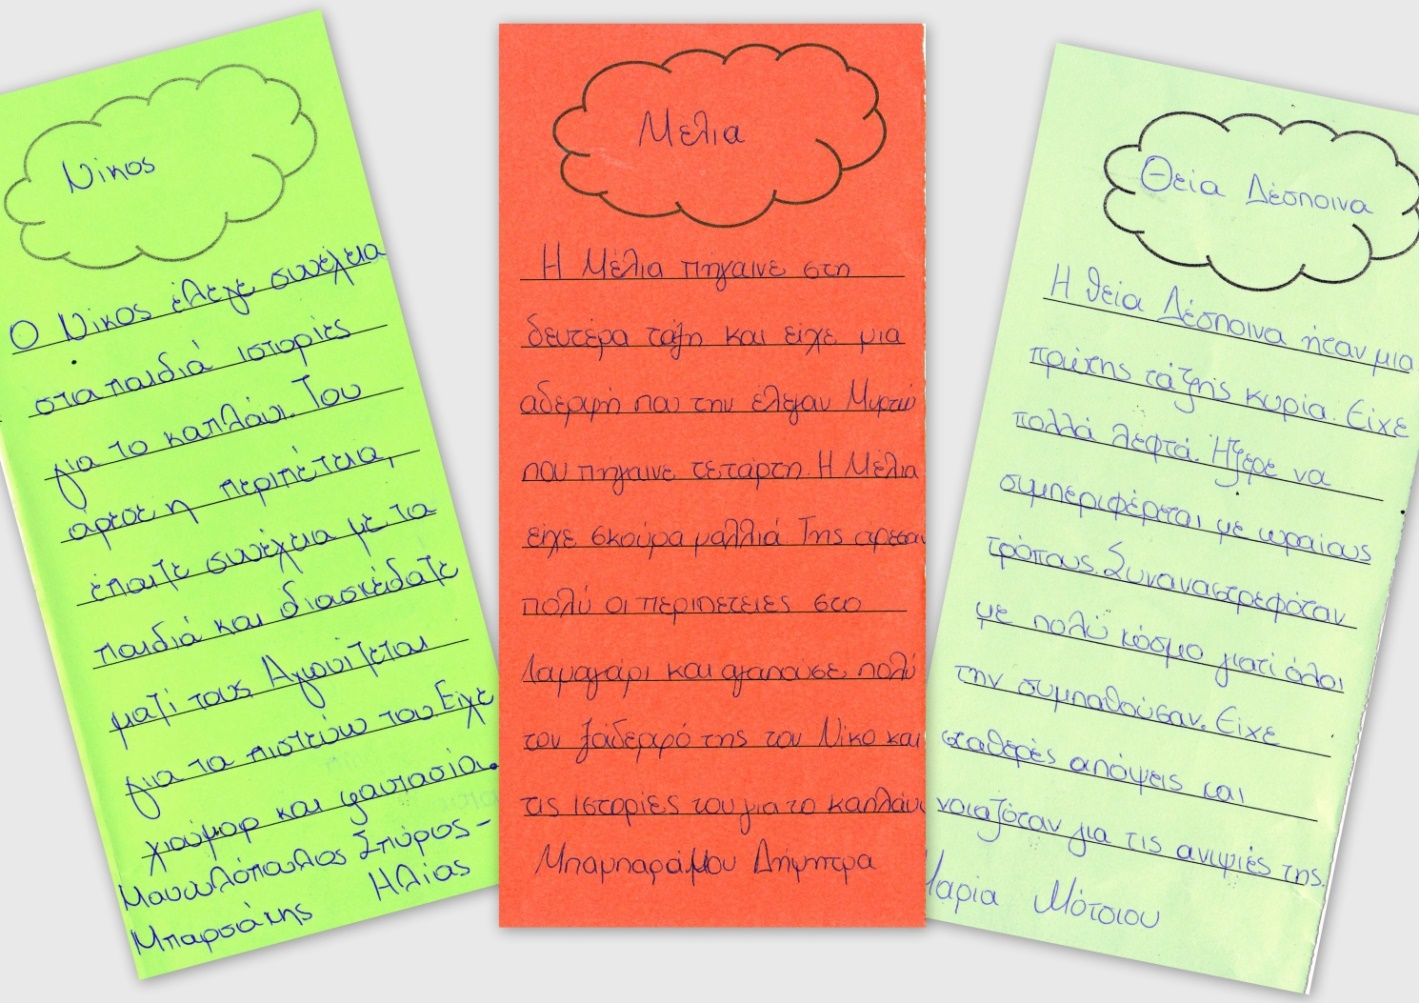 Νίκος
Ο Νίκος έλεγε συνέχεια
στα παιδιά ιστορίες
για το καπλάνι. Του
άρεσε η περιπέτεια,
έπαιζε συνέχεια με τα
παιδιά και διασκέδαζε
μαζί τους. Αγωνίζεται
για τα πιστεύω του. Είχε
χιούμορ και φαντασία.
Μανωλόπουλος Σπύρος -
Μπαρσάκης Ηλίας
Μελια
Η Μέλια πηγαινε στη
δευτέρα τάξη και είχε μια
αδερφή που την έλεγαν Μυρτώ
που πηγαινε τετάρτη. Η Μέλια
είχε σκούρα μαλλιά Της αρεσαν
πολύ οι περιπετειες στο
Λαμαγάρι και αγαπούσε πολύ
τον ξάδερφό της τον Νίκο και
τις ιστορίες του για το καπλάνι
Μπαμπαράμου Δήμητρα
Θεία Δέσποινα
Η θεία Δέσποινα ήταν μια
πρώτης τάξης κυρία. Είχε
πολλά λεφτά. Ήξερε να
συμπεριφέρεται με ωραίους
τρόπους. Συναναστρεφόταν
με πολύ κόσμο γιατί όλοι
την συμπαθούσαν. Είχε
σταθερές απόψεις και
νοιαζόταν για τις ανιψιές της.
Μαρία Μότσιου